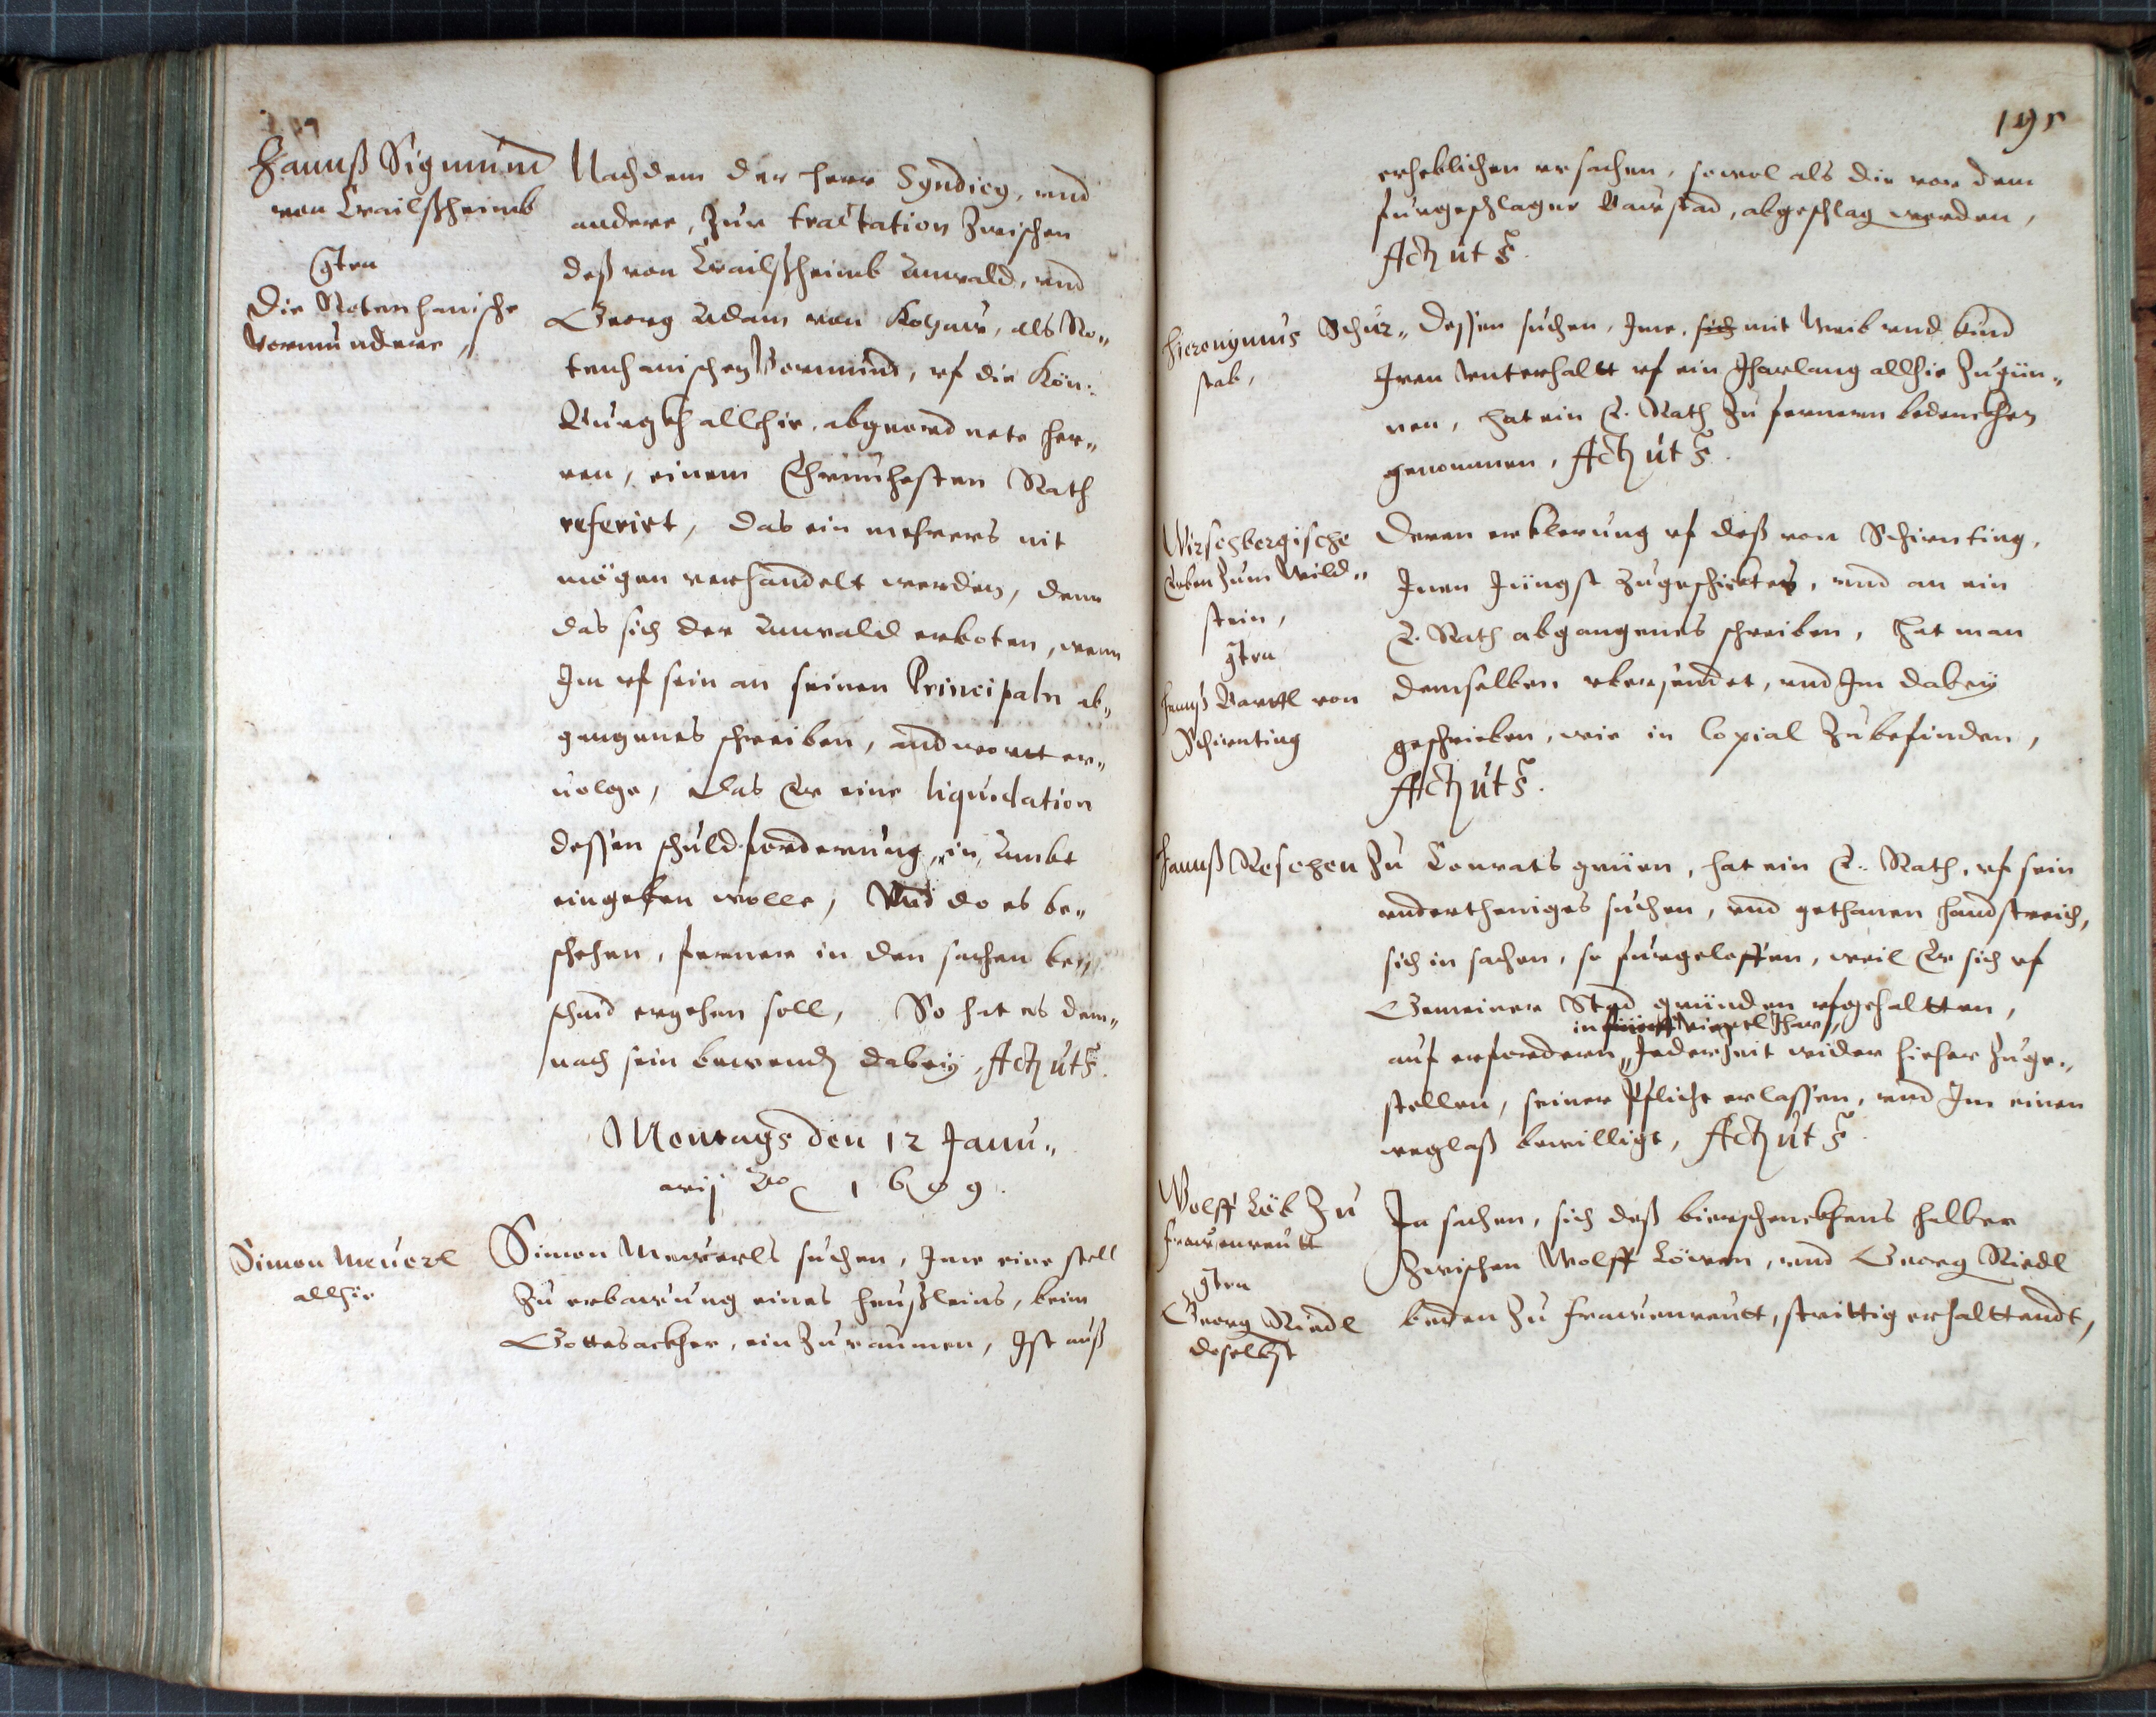 Hannß Sigmund
von Crailßheimb
gten
Die Rotenhanische
Vormundere,
Nachdem der herr Syndicq, vnd
andere, zur tractation zwischen
deß von Crailßheimb Anwald, vnd
Georg Adam von Kotzaw, als Ro„
tenhanischen Vormund, vf die Kön:
Burgkh allhie, abgeordnete her„
ren, einem Ehrnuhesten Rath
referirt, das ein mehrers nit
mögen verhandelt werden, denn
das sich der Anwald erboten, wenn
Im vf sein an seinen Principaln ab„
gangenes schreiben, andwortt er„
uolge, das Er eine liquidation
dessen schuldforderung, in Ambt
eingeben wolle, Vnd do es be„
schehen, ferner in den sachen be„
schaid ergehen soll, So hat es dem„
nach sein bewends dabeÿ, Acts ut s.
Montags den 12 Janu„
arij Ao 1609.
Simon Meuerl
allhie
Simon Meuerls suchen, Ime eine stell
zu erbawung eines heußleins, beim
Gottesackher, einzuraumen, Ist auß
195
erheblichen vrsachen, sowol als die von dem
furgeschlagne Bawstad, abgeschlag werden,
Acts ut s.
Hieronymus Schür„
stab,
Dessen suchen, Ime, sich mit Weib vnd kind
Iren vnterhaltt vf ein Jharlang allhie zugün„
nen, hat ein E. Rath zu fernern bedenckhen
genommen, Acts ut s.
Wirschbergische
Erben zum Wild„
stein,
gten
Hannß Barttl von
Schirnting
Deren erklerung vf deß von Schirnting,
Inen Jüngst zugeschicktes, vnd an ein
E. Rath abgangenes schreiben, hat man
demselben vbersendet, vnd Im dabeÿ
geschrieben, wie in Copial zubefinden,
Acts ut s.
Hannß Reschen zu Conratsgrüen, hat ein E. Rath, vf sein
vndertheniges suchen, vnd gethanen handstreich,
sich in sachen, so furgeloffen, weil Er sich vf
Gemeiner Stad gründen vfgehaltten,
in viertl Jhar,
auf erfordern, Jederzeit wider hieher zuge„
stellen, seiner Pflicht erlassen, vnd Im einen
weglaß bewilligt, Acts ut s.
Wolff Löb zu
Frawenreutt
gten
Georg Riedl
doselbst
In sachen, sich deß bierschenckhens halber
zwischen Wolff Löwen, vnd Georg Riedl
beden zu Frawenreutt, strittig erhalttendt,